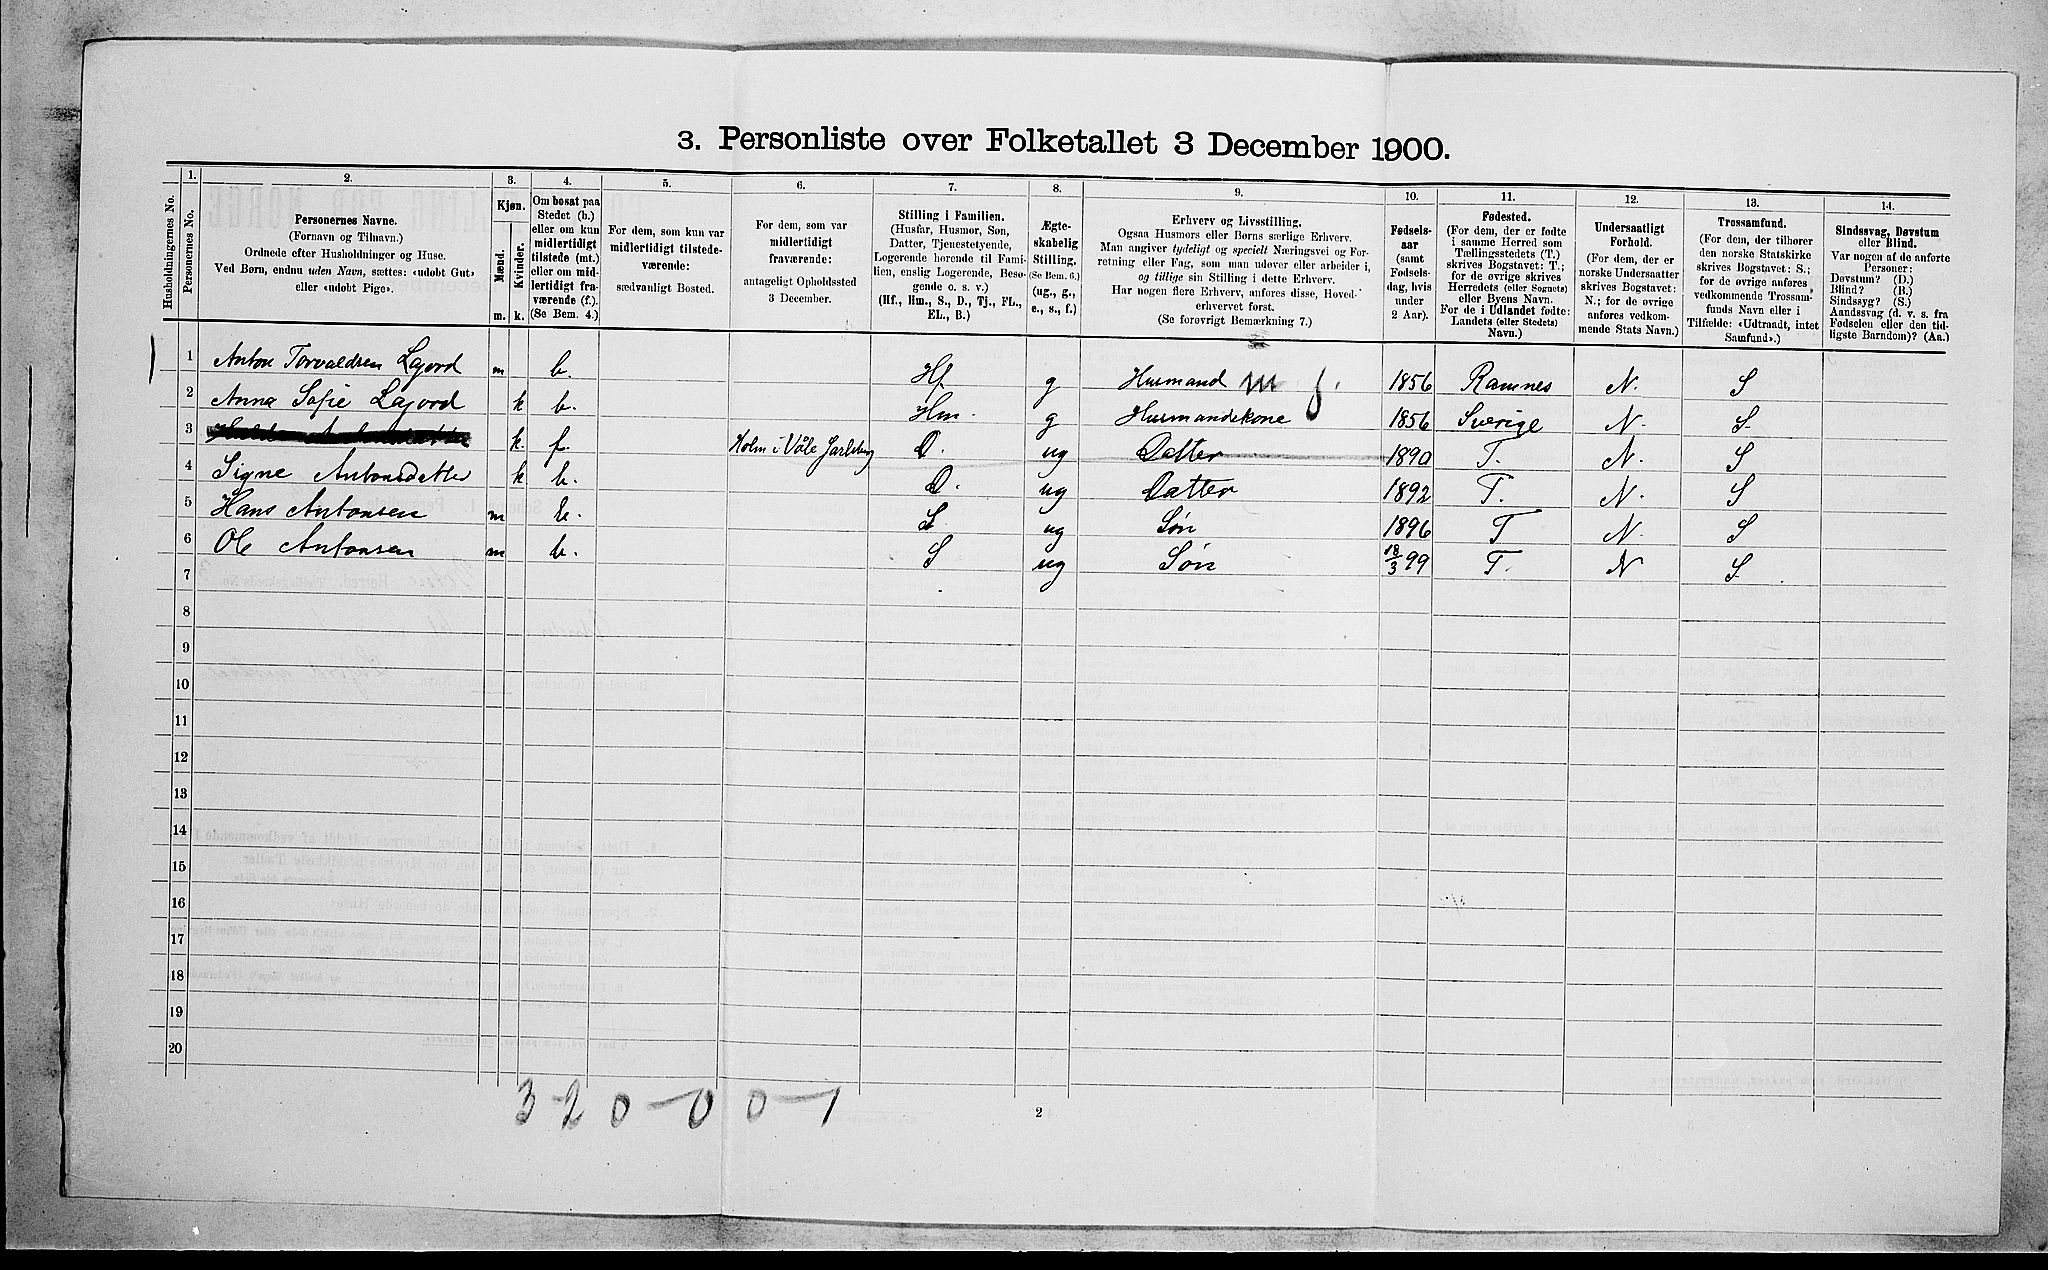 3. Personliste over Folketallet 3 December 1900.
Husholdningernes No.
1.
Personernes No.
2.
Personernes Navne.
(Fornavn og Tilnavn.)
Ordnede efter Husholdninger og Huse.
Ved Børn, endnu uden Navn, sættes: «udøbt Gut»
eller «udøbt Pige».
3.
Kjøn.
Mænd.
Kvinder.
m. k.
4.
Om bosat paa
Stedet (b.)
eller om kun
midlertidigt
tilstede (mt.)
eller om mid-
lertidigt fra-
værende (f.).
(Se Bem. 4.)
5.
For dem, som kun var
midlertidigt tilstede-
værende:
sædvanligt Bosted.
6.
For dem, som var
midlertidigt
fraværende:
antageligt Opholdssted
3 December.
7.
Stilling i Familien.
(Husfar, Husmor, Søn,
Datter, Tjenestetyende,
Logerende hørende til Fami-
lien, enslig Logerende, Besø-
gende o. s. v.)
(Hf., Hm., S., D., Tj., FL.,
EL., B.)
8.
Ægte-
skabelig
Stilling.
(Se Bem. 6.)
(ug., g.,
e., s., f.)
9.
Erhverv og Livsstilling.
Ogsaa Husmors eller Børns særlige Erhverv.
Man angiver tydeligt og specielt Næringsvei og For-
retning eller Fag, som man udøver eller arbeider i,
og tillige sin Stilling i dette Erhverv.
Har nogen flere Erhverv, anføres disse, Hoved-
erhvervet først.
(Se forøvrigt Bemærkning 7.)
10.
Fødsels-
aar
(samt
Fødsels-
dag, hvis
under
2 Aar).
11.
Fødested.
(For dem, der er fødte
i samme Herred som
Tællingsstedets (T.)
skrives Bogstavet: T.;
for de øvrige skrives
Herredets (eller Sognets)
eller Byens Navn.
For de i Udlandet fødte:
Landets (eller Stedets)
Navn.)
12.
Undersaatligt
Forhold.
(For dem, der er
norske Undersaatter
skrives Bogstavet:
N.; for de øvrige
anføres vedkom-
mende Stats Navn.)
13.
Trossamfund.
(For dem, der tilhører
den norske Statskirke
skrives Bogstavet: S.;
for de øvrige anføres
vedkommende Trossam-
funds Navn eller i
Tilfælde: «Udtraadt, intet
Samfund».)
14.
Sindssvag, Døvstum
eller Blind.
Var nogen af de anførte
Personer:
Døvstum? (D.)
Blind? (B.)
Sindssyg? (S.)
Aandssvag (d. v. s. fra
Fødselen eller den tid-
ligste Barndom)? (Aa.)
1 Anton Torvaldsen Lajord m b. Hf. g Husmand m j. 1856 Ramnes N. S
2 Anna Sofie Lajord k b. Hm. g Husmandskone 1856 Sverige N. S.
3 k. f. Holm i Våle Jarlsberg D. ug Datter 1890 T. N. S
4 Signe Antonsdatter k b. D. ug Datter 1892 T. N. S
5 Hans Antonsen m b. S. ug Søn 1896 T N. S
6 Ole Antonsen m b. S ug Søn 18/3 99 T. N S.
7
8
9
10
11
12
13
14
15
16
17
18
19
20
3-20-00-1
2